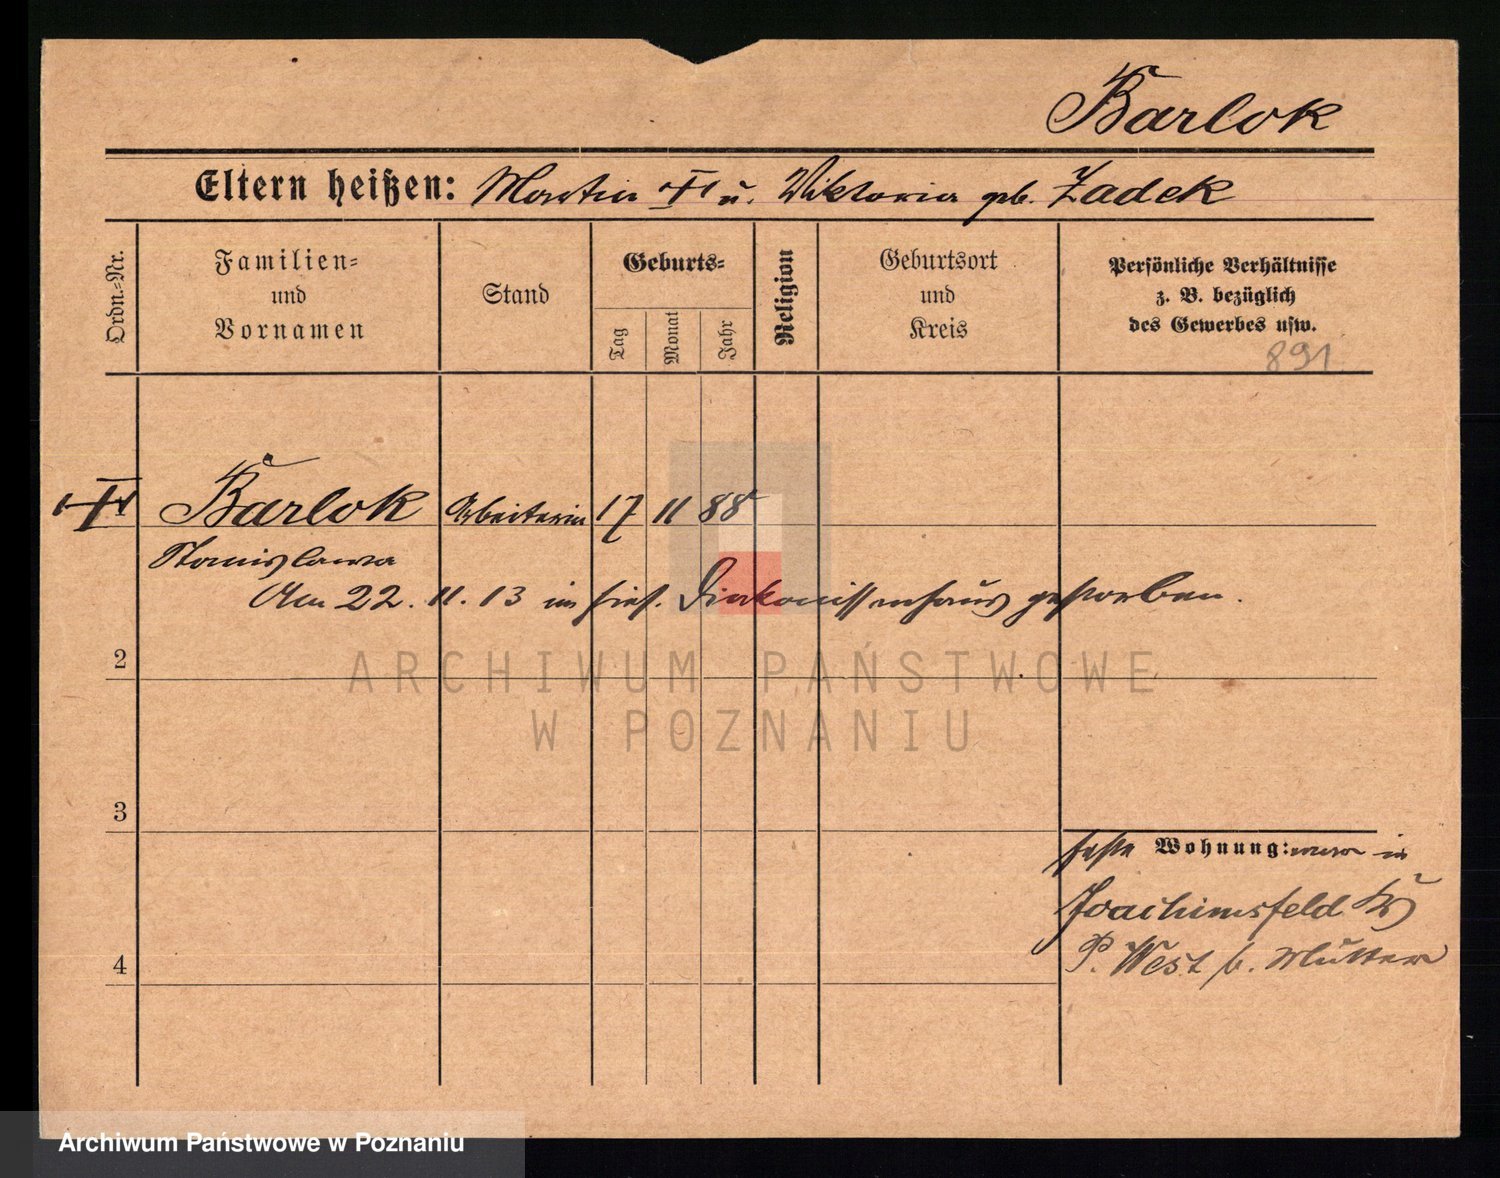 Barlok
Eltern heißen: Martin u. Wiktoria geb. Zadek
Ordn.-Nr.
Familien-
und
Vornamen
Stand
Geburts-
Tag
Monat
Jahr
Religion
Geburtsort
und
Kreis
Persönliche Verhältnisse
z. B. bezüglich
des Gewerbes usw.
891
Barlok Arbeiterin 17 11 88
Stanislawa
Am 22. 11. 13 im hies. Diakonissenhaus gestorben.
2
3
4
feste Wohnung: war in
Joachimsfeld Kr
P. West b. Mutter
ARCHIWUM PAŃSTWOWE
W POZNANIU
Archiwum Państwowe w Poznaniu